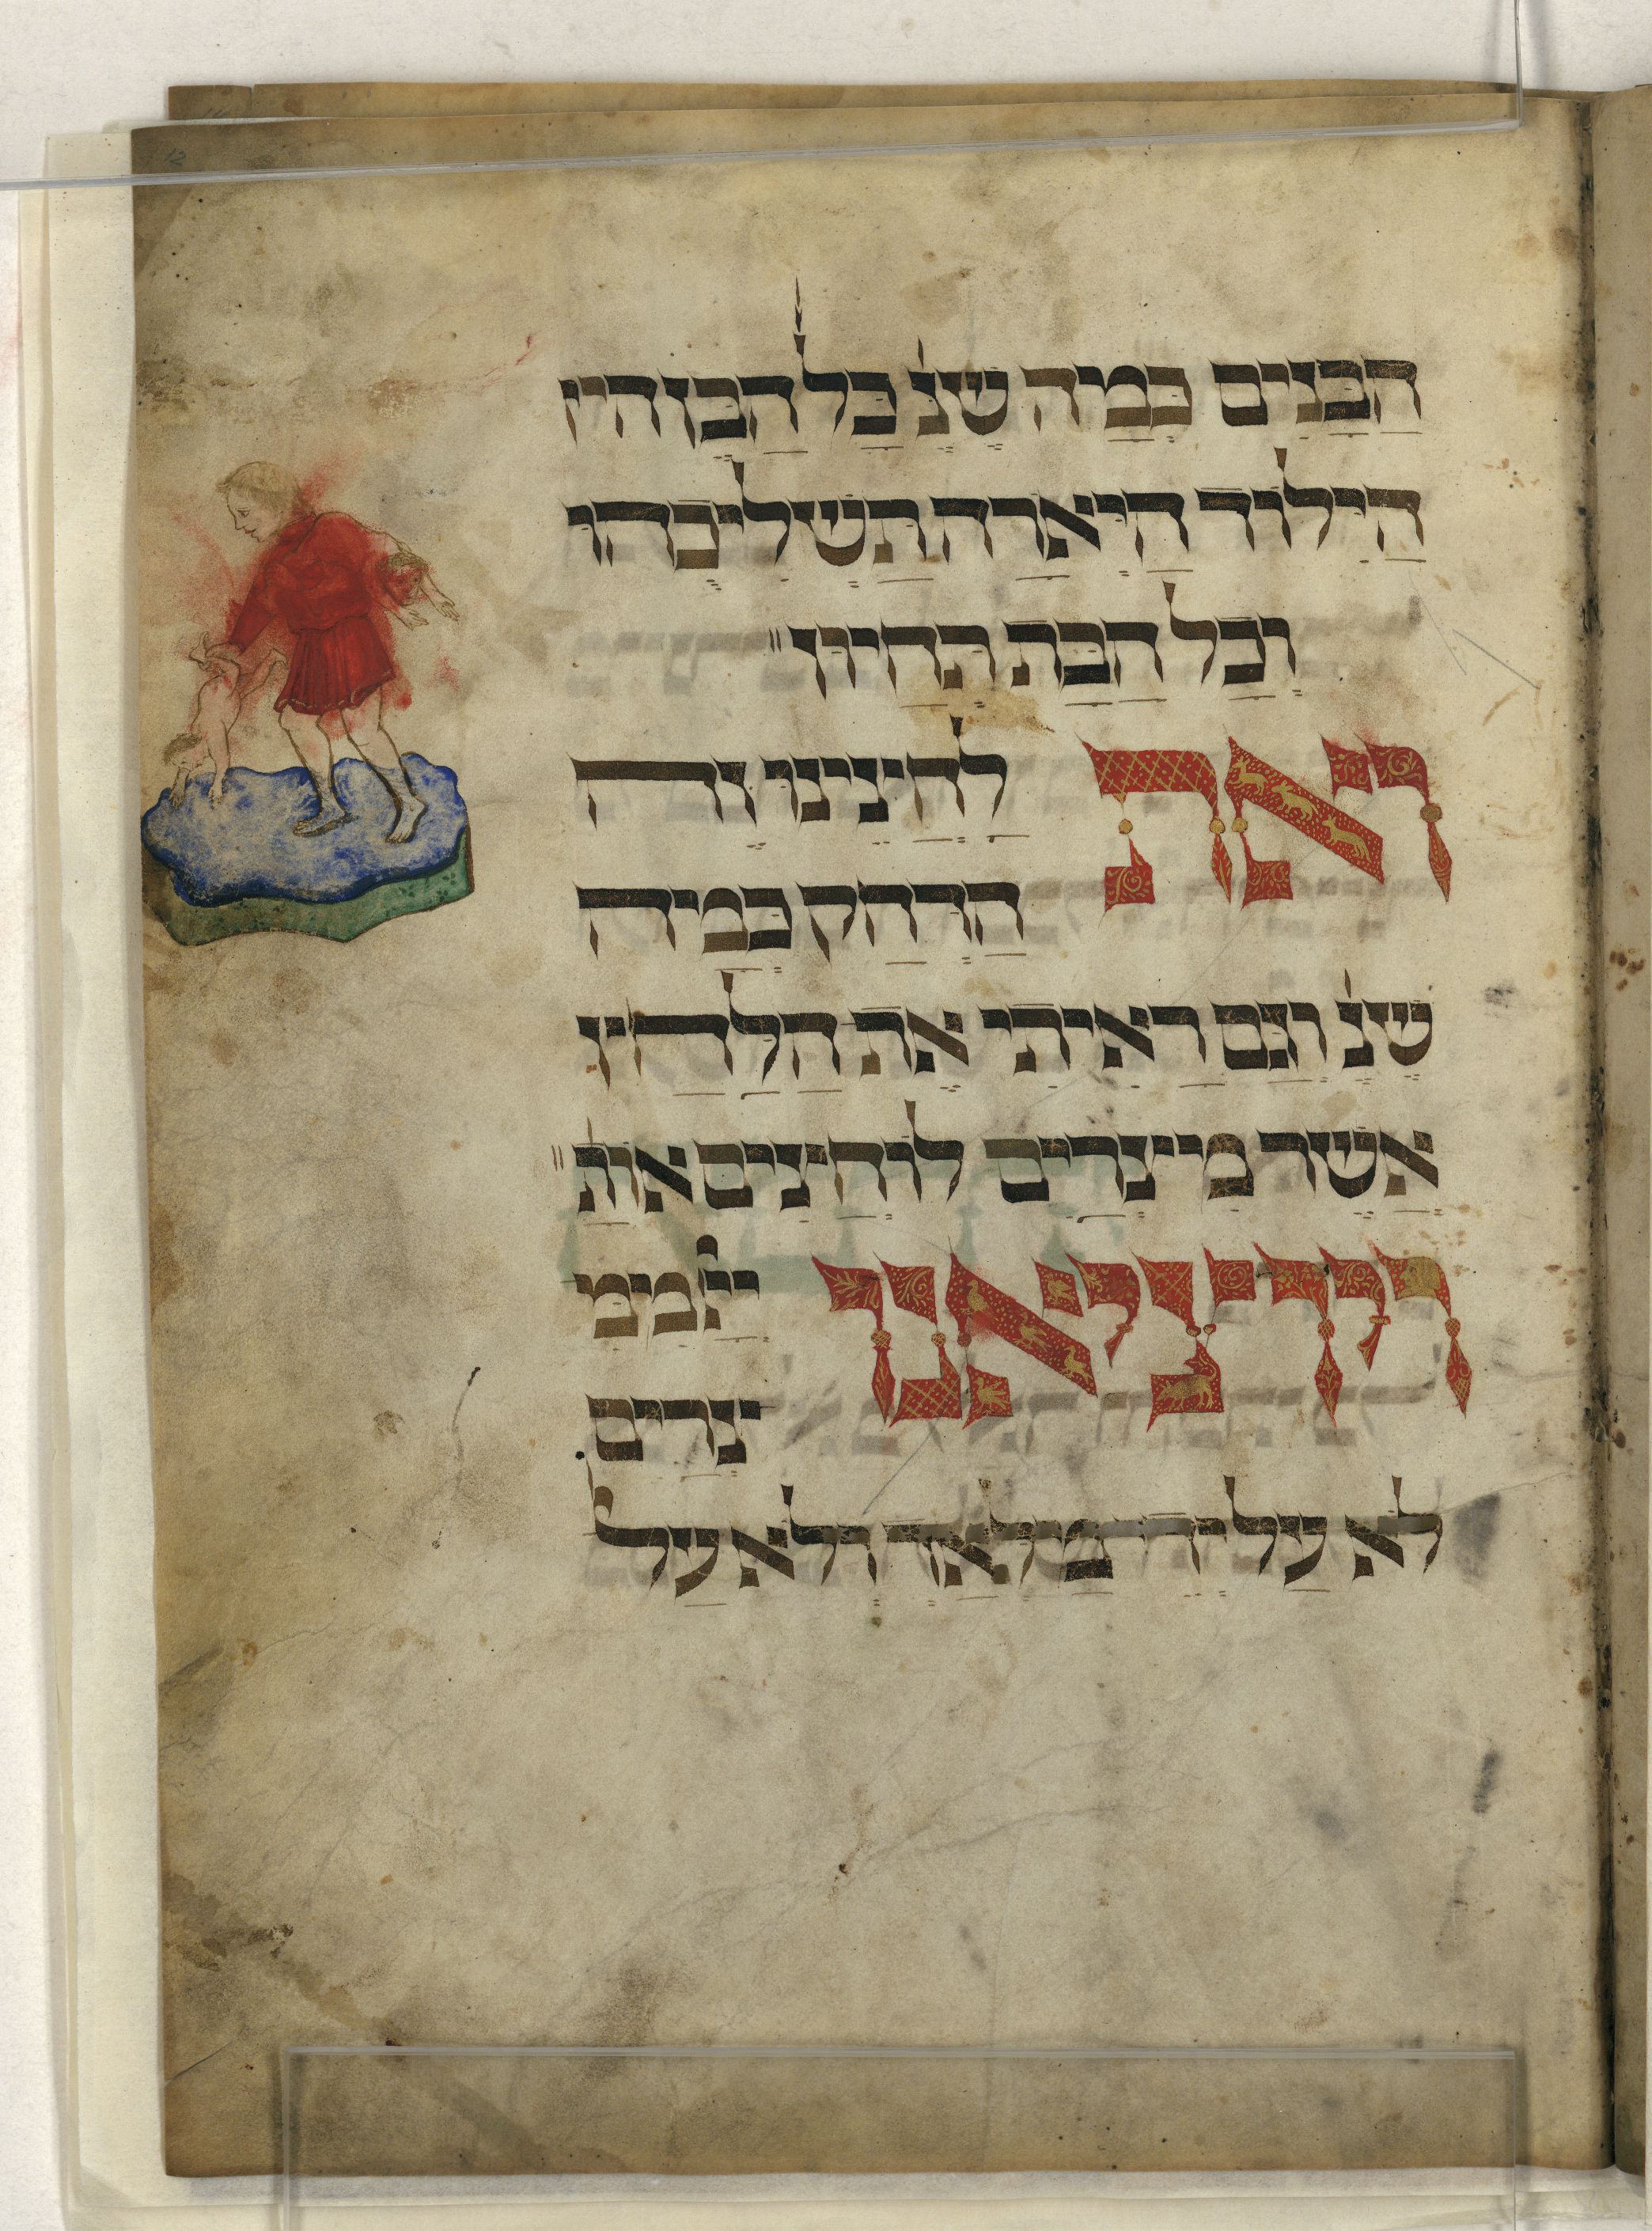 12
הבנים כמה שנ׳ כל הבן היו
הילוד היארה תשליכהו
וכל הבת תחיון״
ואת לחצינו זה
הדחק כמה
שנ׳ וגם ראיתי את הלחץ
אשר מצרים לוחצים אות׳״
ויוציאנו יי׳ ממ
צרים
לא על ידי מלאך ולא על